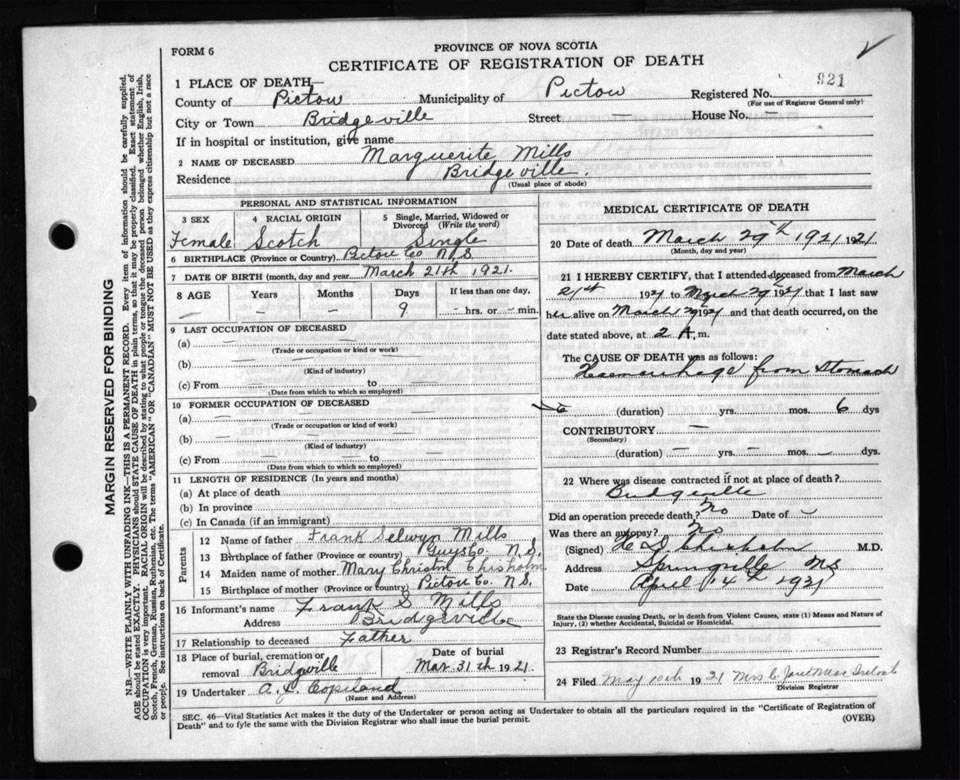 FORM 6
PROVINCE OF NOVA SCOTIA
CERTIFICATE OF REGISTRATION OF DEATH
921
1 PLACE OF DEATH—
County of Pictou Municipality of Pictou Registered No.
(For use of Registrar General only)
City or Town Bridgeville Street — House No. —
If in hospital or institution, give name
2 NAME OF DECEASED Marguerite Mills
Residence Bridgeville.
(Usual place of abode)
PERSONAL AND STATISTICAL INFORMATION
3 SEX 4 RACIAL ORIGIN 5 Single, Married, Widowed or Divorced (Write the word)
Female Scotch Single
6 BIRTHPLACE (Province or Country) Pictou Co N.S.
7 DATE OF BIRTH (month, day and year) March 21th 1921.
8 AGE Years Months Days If less than one day,
— — 9 — hrs. or — min.
9 LAST OCCUPATION OF DECEASED
(a) —
(Trade or occupation or kind or work)
(b) —
(Kind of industry)
(c) From — to —
(Date from which to which so employed)
10 FORMER OCCUPATION OF DECEASED
(a) —
(Trade or occupation or kind of work)
(b) —
(Kind of industry)
(c) From — to —
(Date from which to which so employed)
11 LENGTH OF RESIDENCE (In years and months)
(a) At place of death
(b) In province
(c) In Canada (if an immigrant)
Parents
12 Name of father Frank Selwyn Mills
13 Birthplace of father (Province or country) Guys Co. N.S.
14 Maiden name of mother Mary Christn Chisholm
15 Birthplace of mother (Province or country) Pictou Co. N.S.
16 Informant's name Frank S Mills
Address Bridgeville
17 Relationship to deceased Father
18 Place of burial, cremation or removal Bridgeville Date of burial Mar. 31th 1921.
19 Undertaker A. D. Copeland
(Name and Address)
MEDICAL CERTIFICATE OF DEATH
20 Date of death March 29th 1921 1921
(Month, day and year)
21 I HEREBY CERTIFY, that I attended deceased from March
21st 1921 to March 29th 1921 that I last saw
her alive on March 29 1921 and that death occurred, on the
date stated above, at 2 A. m.
The CAUSE OF DEATH was as follows:
Haemorrhage from Stomach
6 (duration) yrs. mos. 6 dys
CONTRIBUTORY —
(Secondary)
(duration) — yrs. — mos. — dys.
22 Where was disease contracted if not at place of death?
Bridgeville
Did an operation precede death? No Date of —
Was there an autopsy? No
(Signed) H D Chisholm M.D.
Address Springville NS
Date April 14th 1921
State the Disease causing Death, or in death from Violent Causes, state (1) Means and Nature of
Injury, (2) whether Accidental, Suicidal or Homicidal.
23 Registrar's Record Number
24 Filed May 10th 1921 Mrs C
Division Registrar
SEC. 46—Vital Statistics Act makes it the duty of the Undertaker or person acting as Undertaker to obtain all the particulars required in the "Certificate of Registration of
Death" and to fyle the same with the Division Registrar who shall issue the burial permit.
(OVER)
MARGIN RESERVED FOR BINDING
N.B.—WRITE PLAINLY WITH UNFADING INK—THIS IS A PERMANENT RECORD. Every item of information should be carefully supplied.
AGE should be stated EXACTLY. PHYSICIANS should STATE CAUSE OF DEATH in plain terms, so that it may be properly classified. Exact statement of
OCCUPATION is very important. RACIAL ORIGIN will be described by stating to what people or tongue the deceased person belonged whether English, Irish,
Scotch, French, German, Russian, Ruthenian, etc. The terms "AMERICAN" or "CANADIAN" MUST NOT BE USED as they express citizenship but not a race
or people. See instructions on back of Certificate.